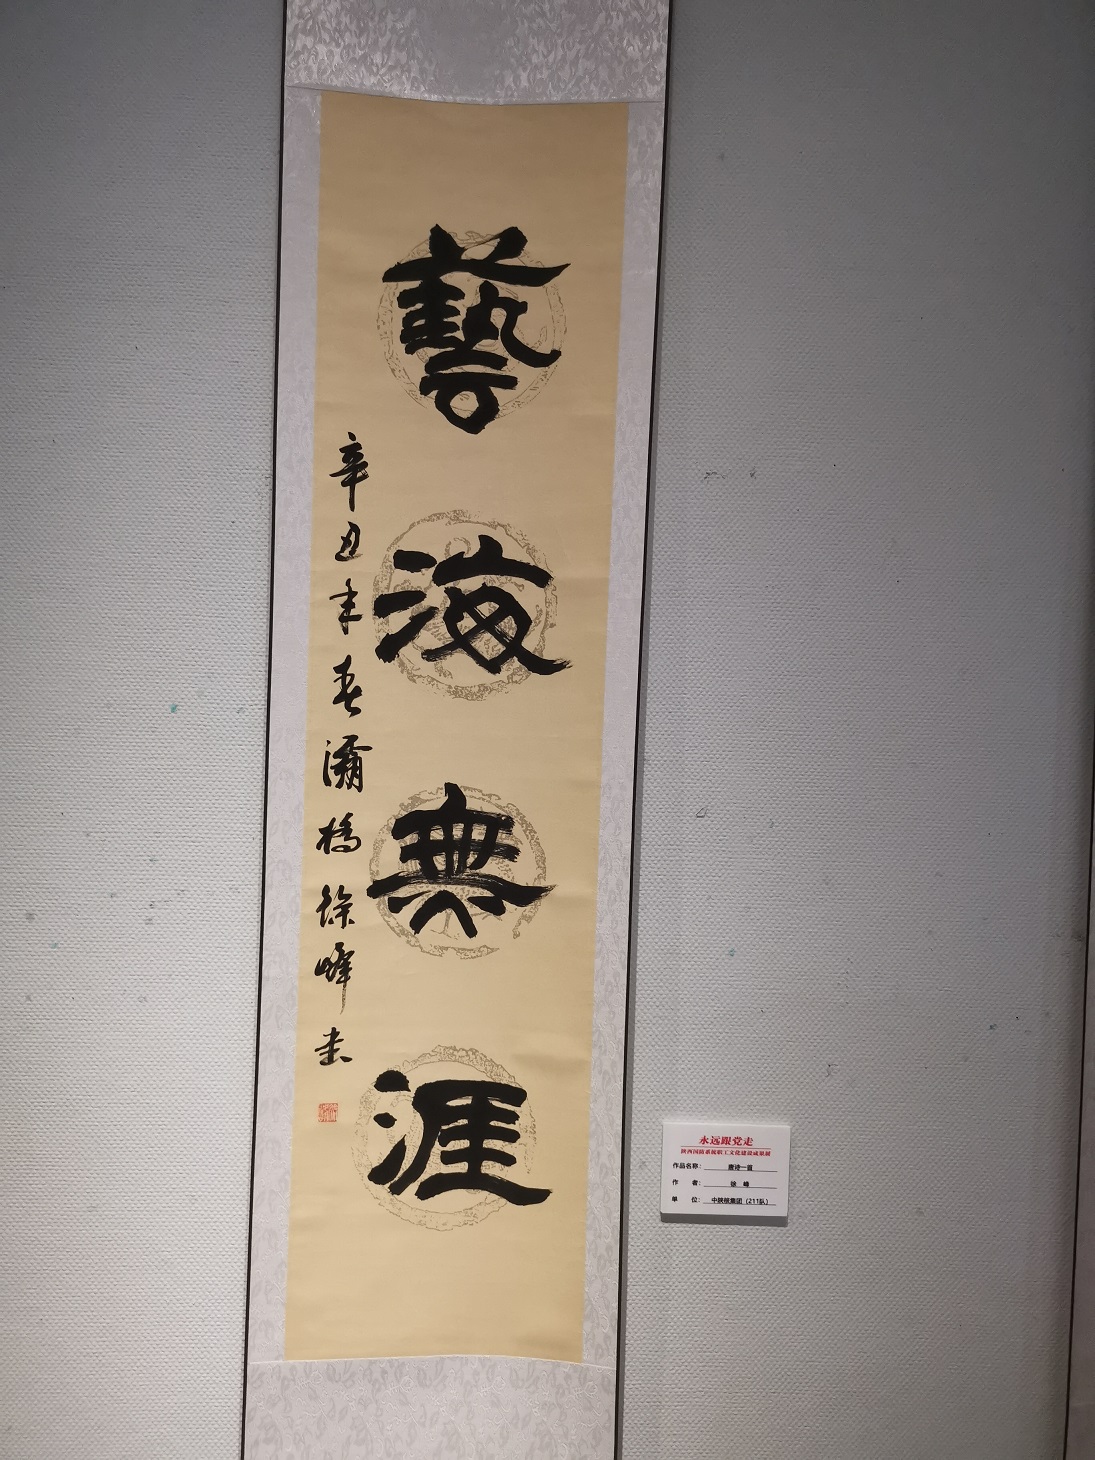 藝海無涯
辛丑年春灞橋徐峰書
永远跟党走
陕西国防系统职工文化建设成果展
作品名称：唐诗一首
作 者：徐 峰
单 位：中陕核集团（211队）